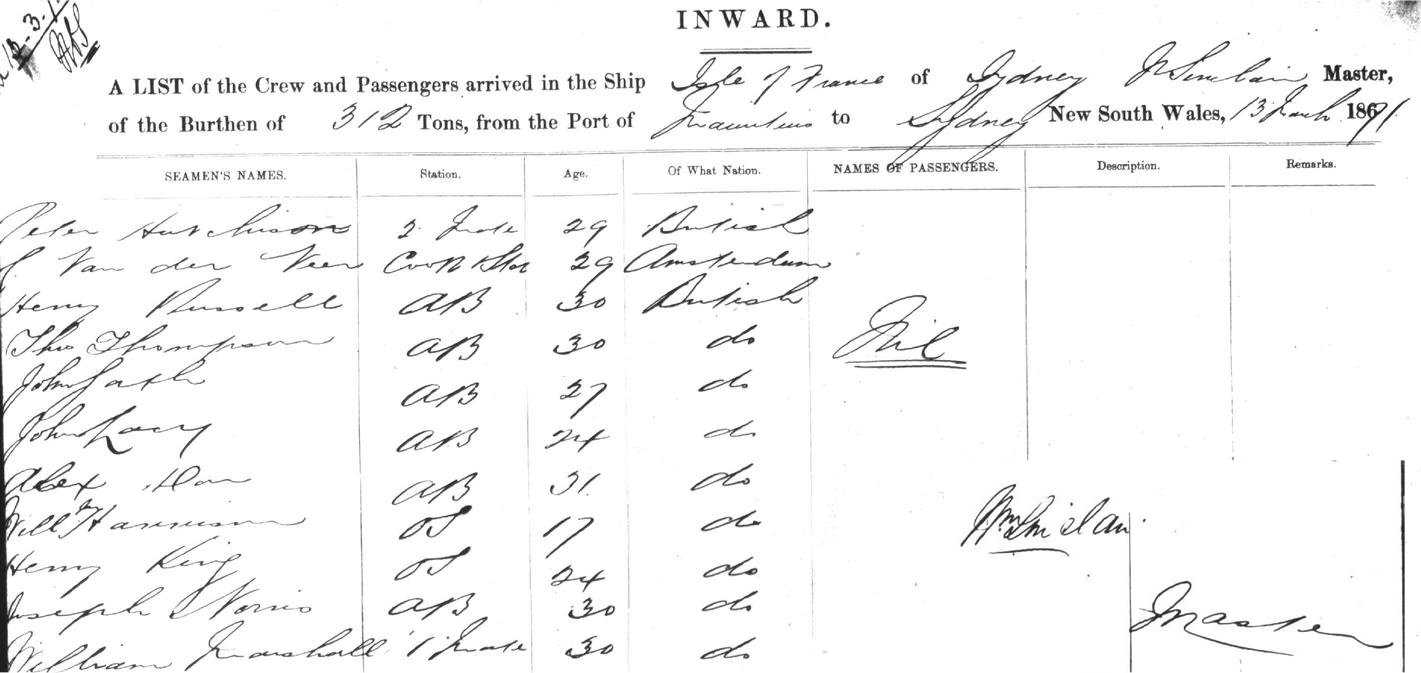 INWARD.
A LIST of the Crew and Passengers arrived in the Ship Isle of France of Sydney Sinclair Master,
of the Burthen of 312 Tons, from the Port of Mauritius to Sydney New South Wales, 13 March 1871
SEAMEN'S NAMES. Station. Age. Of What Nation. NAMES OF PASSENGERS. Description. Remarks.
Peter Hutchison 2 Mate 29 British
Van der Veer Cook & Std 29 Amsterdam
Henry Russell AB 30 British
Thos Thompson AB 30 do Nil
John AB 27 do
John Lacy AB 24 do
Alex AB 31 do
Willm Harrison OS 17 do
Wm Sinclair
Henry King OS 24 do
Joseph Norris AB 30 do
Master
William Marshall 1 Mate 30 do